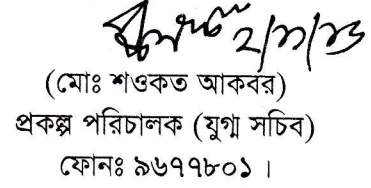 ২/৭/২৩
(মোঃ শওকত আকবর)
প্রকল্প পরিচালক (যুগ্ম সচিব)
ফোনঃ ৯৬৭৭৮০১।